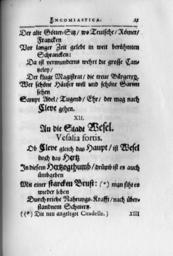 ENCOMIASTICA.
Der alte Götter-Sitz/ wo Teutsche/ Römer/
Francken
Vor langer Zeit gelebt in weit berühmten
Schrancken:
Da ist verwunderns wehrt die grosse
Der kluge Magistrat/ die treue Bürgery/
Wer schöne Häuser will und schöne Garten
sehen
Sampt Adel/ Tugend/ Ehr/ der mag nach
Cleve gehen.
XII.
An die Stadt Wesel.
Vesalia fortis.
Ob Cleve gleich das Haupt/ ist Wesel
doch das Hertz
In diesem Hertzogthumb/ drumb ist es auch
umbgeben
Mit einer starcken Brust: (*) man siht es
wieder leben
Durch Nahrungs-Krafft/ nach über-
standnem Schmertz.
(* Die neu angelegte Citadelle.)
XIII